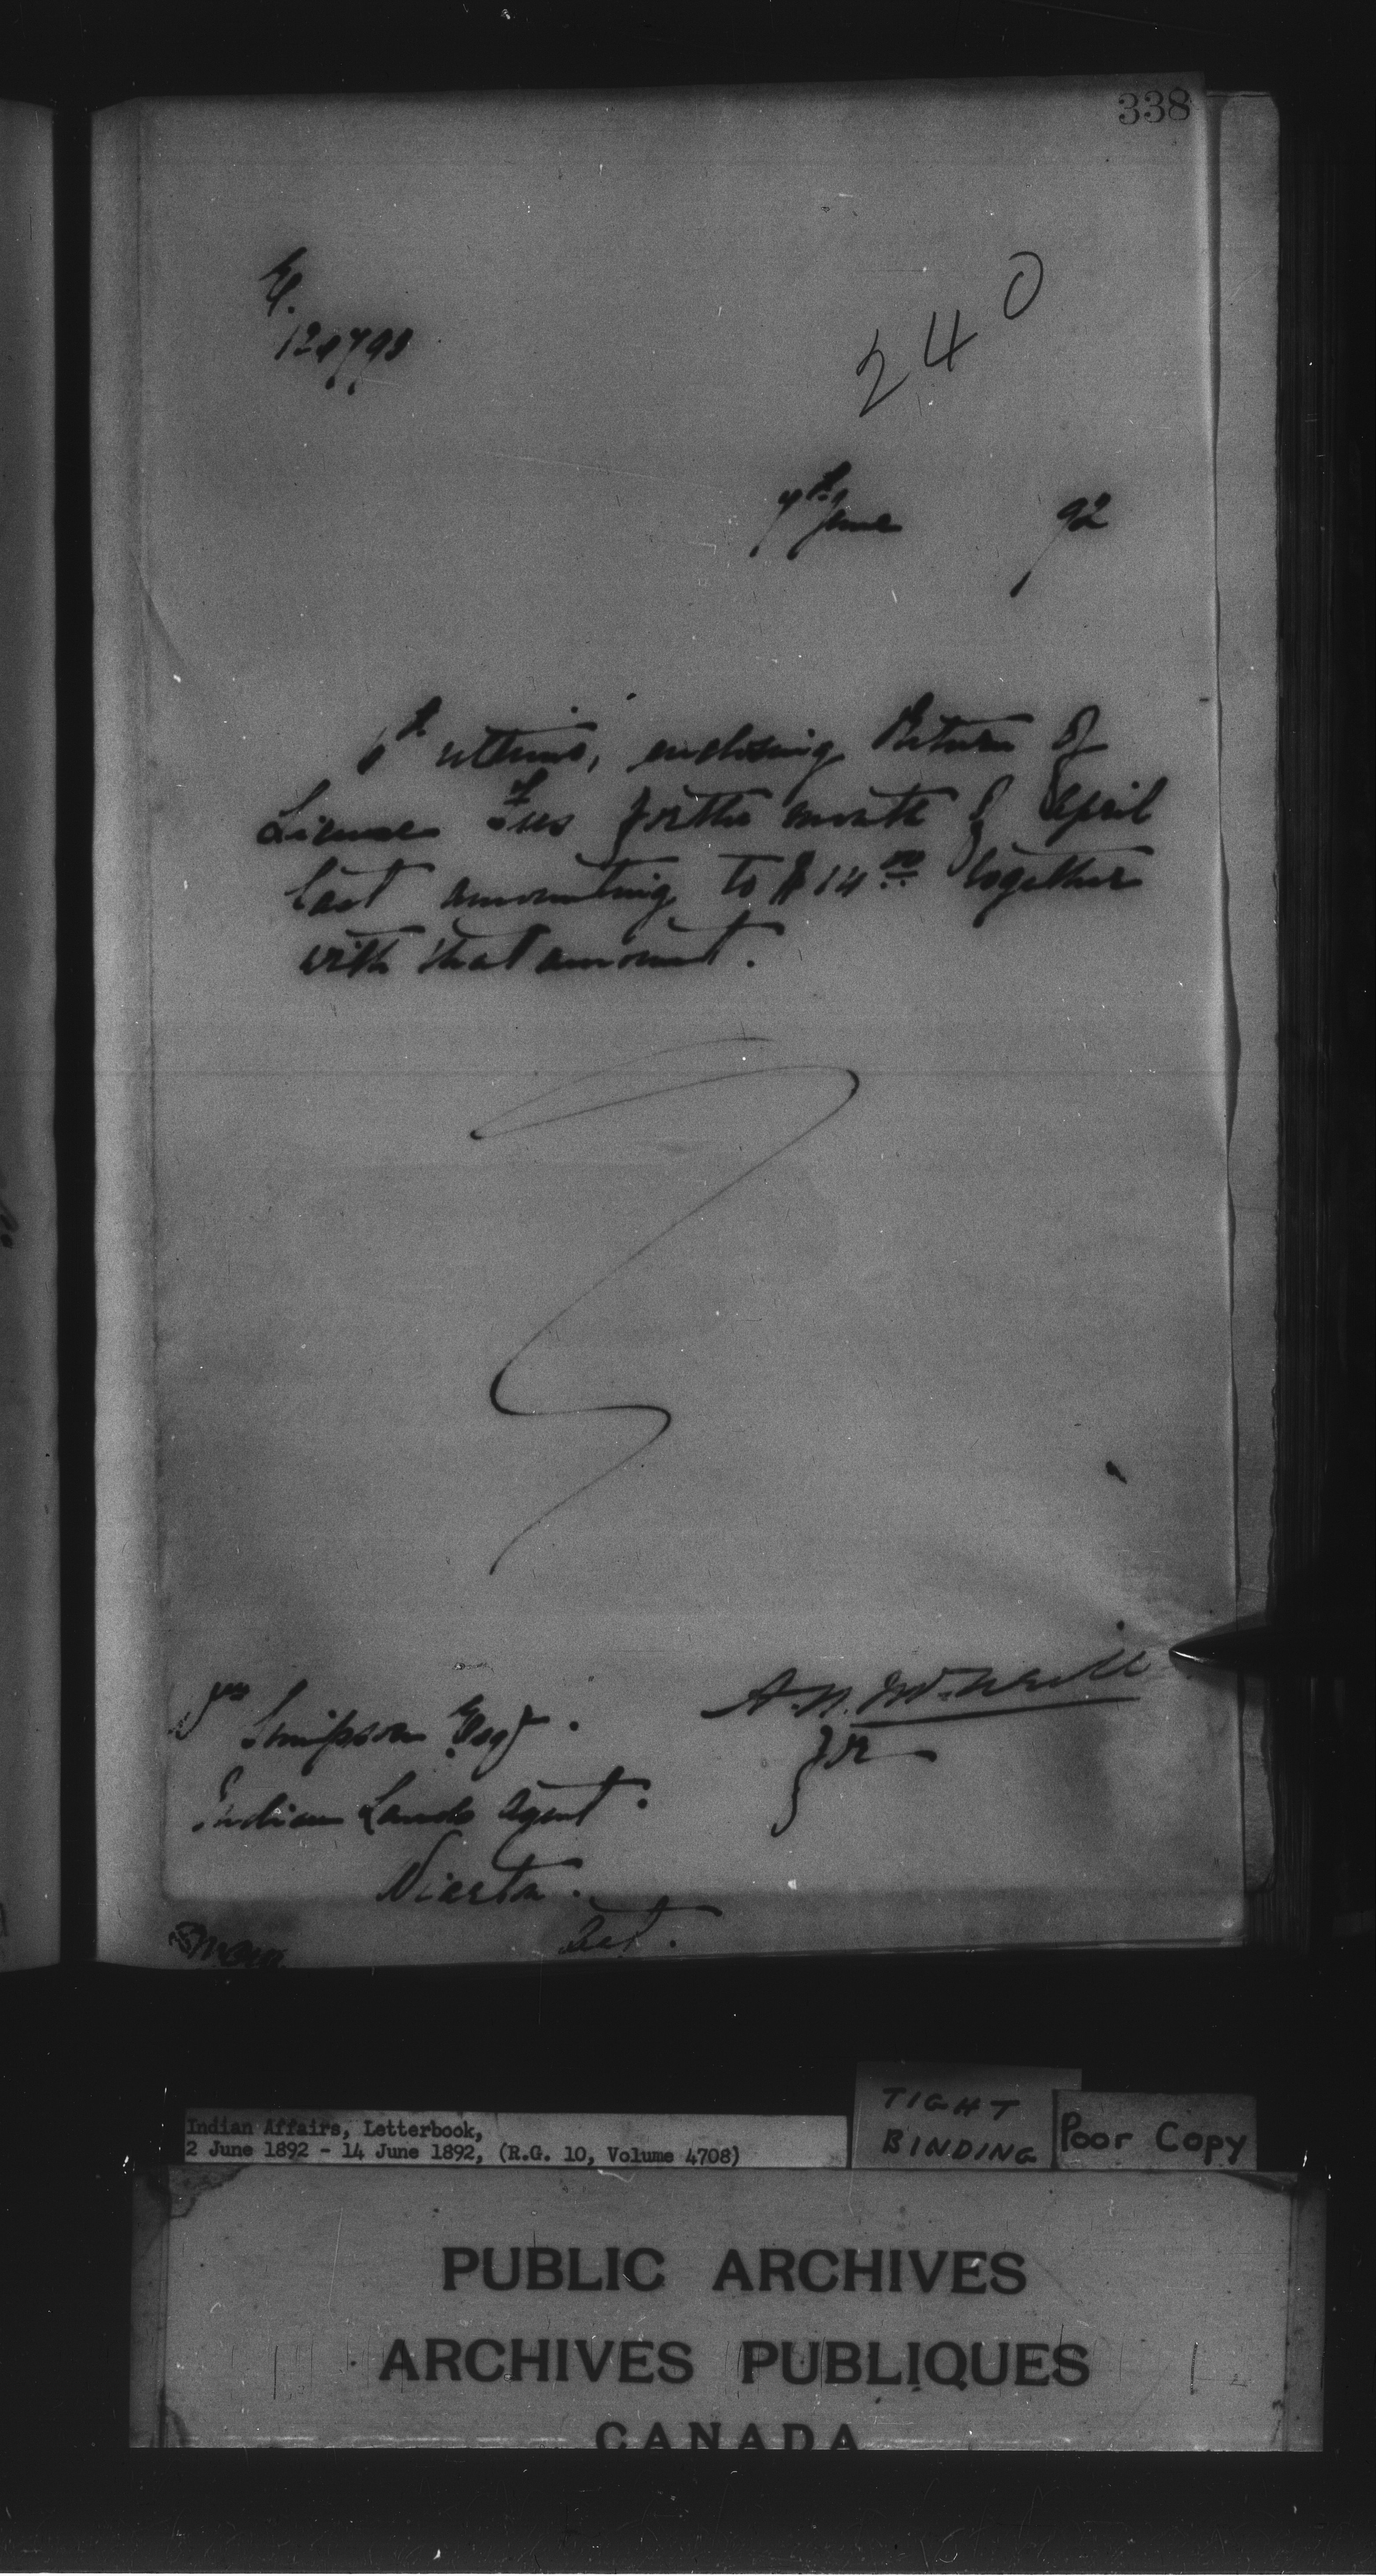 338
E.
120798
240
7th June 92
6th ultimo, enclosing Return of
License Fees for the month of April
last amounting to $14.00 together
with that amount.
Wm Simpson Esqr.
A.N. McNeill
for
Indian Lands Agent.
Wiarton.
Ont.
Indian Affairs, Letterbook,
2 June 1892 - 14 June 1892, (R.G. 10, Volume 4708)
TIGHT
BINDING
Poor Copy
PUBLIC ARCHIVES
ARCHIVES PUBLIQUES
CANADA